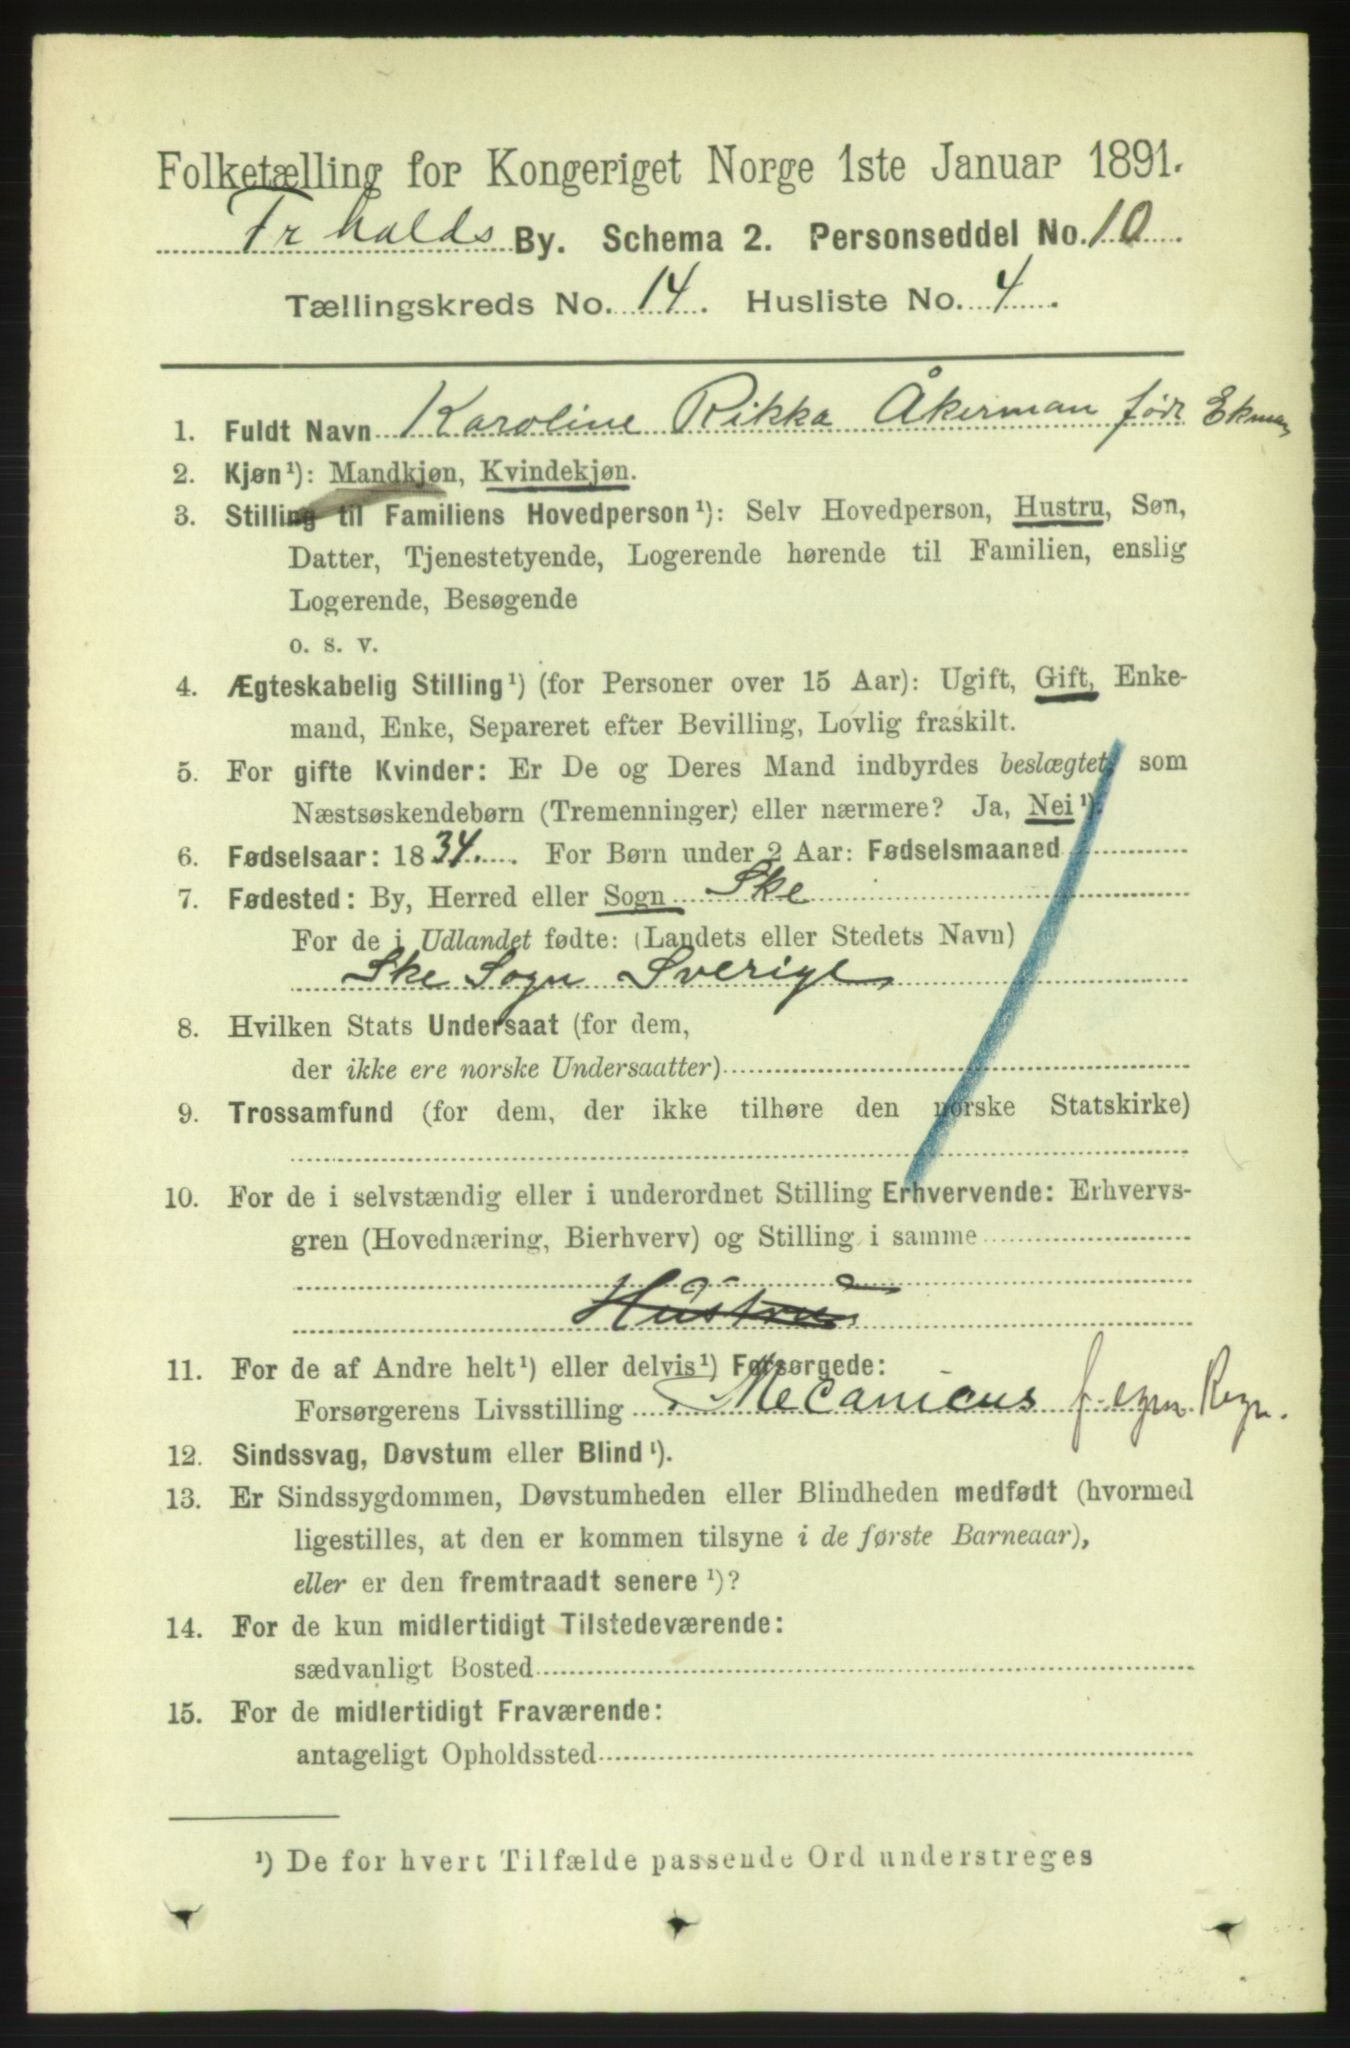 Folketælling for Kongeriget Norge 1ste Januar 1891.
Fr halds By. Schema 2. Personseddel No. 10
Tællingskreds No. 14. Husliste No. 4
1. Fuldt Navn Karoline Rikka Åkerman født Ekman
2. Kjøn¹): Mandkjøn, Kvindekjøn.
3. Stilling til Familiens Hovedperson¹): Selv Hovedperson, Hustru, Søn,
Datter, Tjenestetyende, Logerende hørende til Familien, enslig
Logerende, Besøgende
o. s. v.
4. Ægteskabelig Stilling¹) (for Personer over 15 Aar): Ugift, Gift, Enke-
mand, Enke, Separeret efter Bevilling, Lovlig fraskilt.
5. For gifte Kvinder: Er De og Deres Mand indbyrdes beslægtet, som
Næstsøskendebørn (Tremenninger) eller nærmere? Ja, Nei¹).
6. Fødselsaar: 1834. For Børn under 2 Aar: Fødselsmaaned
7. Fødested: By, Herred eller Sogn Ske
For de i Udlandet fødte: (Landets eller Stedets Navn)
Ske Sogn Sverige
8. Hvilken Stats Undersaat (for dem,
der ikke ere norske Undersaatter)
9. Trossamfund (for dem, der ikke tilhøre den norske Statskirke)
10. For de i selvstændig eller i underordnet Stilling Erhvervende: Erhvervs-
gren (Hovednæring, Bierhverv) og Stilling i samme
Hustru
11. For de af Andre helt¹) eller delvis¹) Forsørgede:
Forsørgerens Livsstilling Mecanicus f. egen Regn.
12. Sindssvag, Døvstum eller Blind¹).
13. Er Sindssygdommen, Døvstumheden eller Blindheden medfødt (hvormed
ligestilles, at den er kommen tilsyne i de første Barneaar),
eller er den fremtraadt senere¹)?
14. For de kun midlertidigt Tilstedeværende:
sædvanligt Bosted
15. For de midlertidigt Fraværende:
antageligt Opholdssted
¹) De for hvert Tilfælde passende Ord understreges